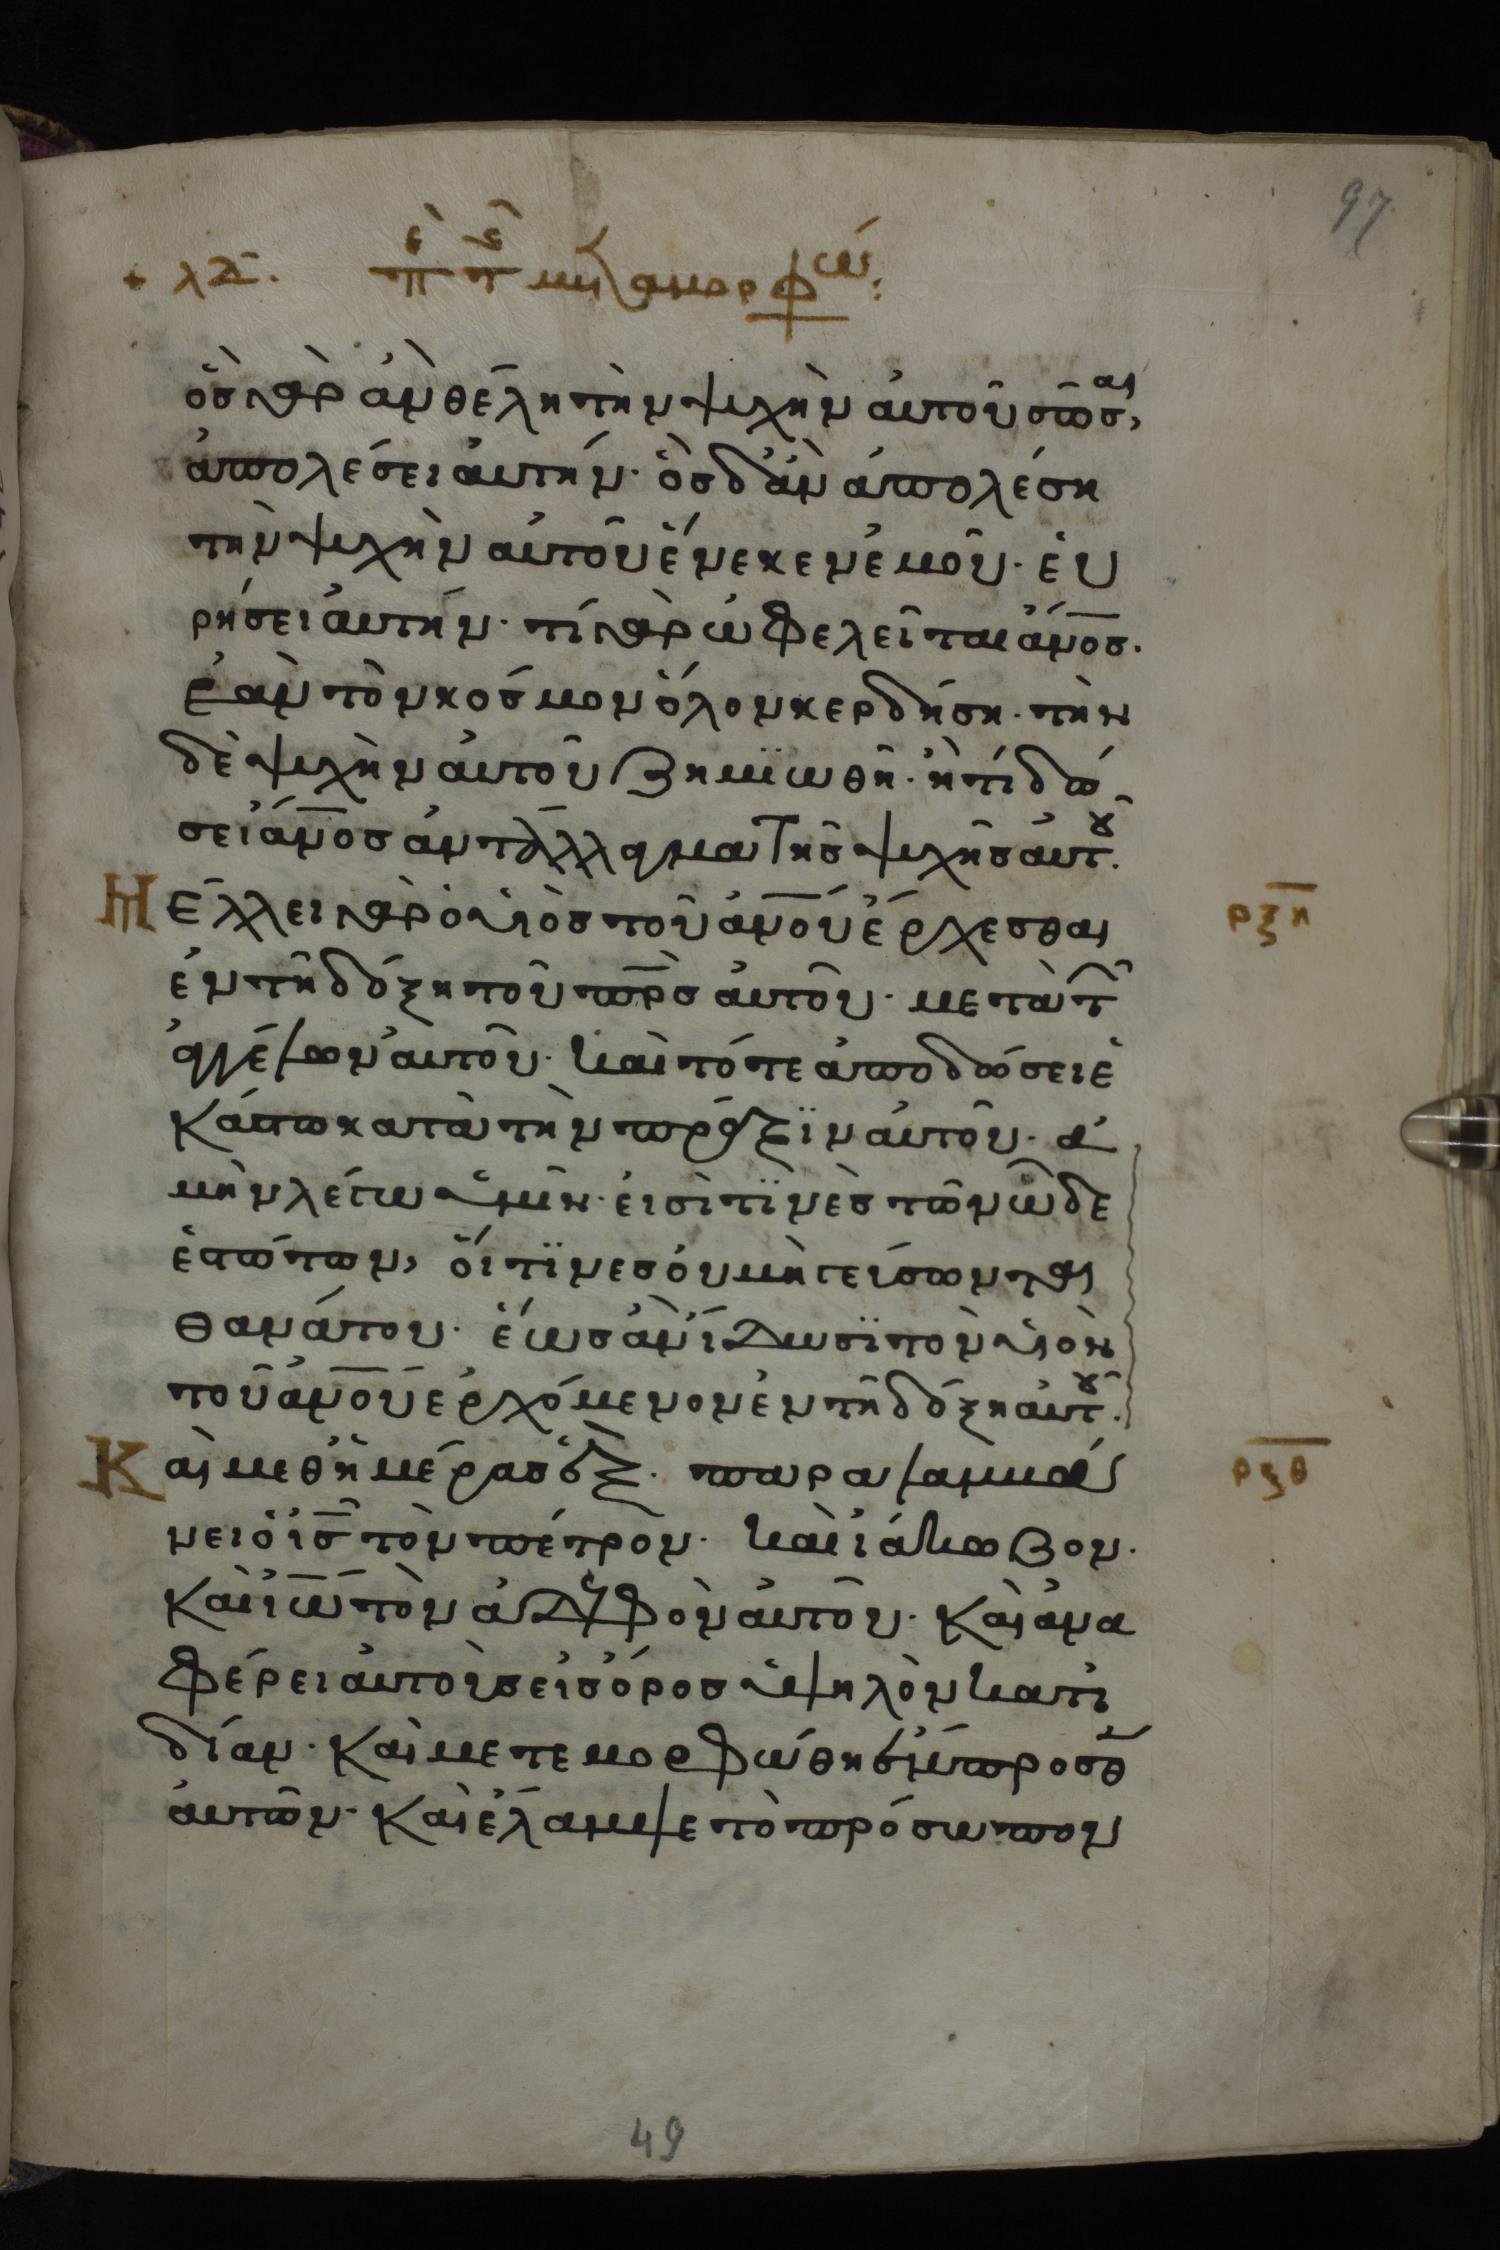 97
+ λδ. πὲ τ῀ς μεταμορφώ:
ὃς γὰρ ἂν θέλη τὴν ψυχὴν αὐτοῦ σῶσαι,
ἀπολέσει αὐτήν· ὃς δ' ἂν ἀπολέση
τὴν ψυχὴν αὐτοῦ ἕνεκεν ἐμοῦ· εὑ
ρήσει αὐτήν· τί γὰρ ὠφελεῖται ἄν̅ο̅ς̅.
ἐὰν τὸν κόσμον ὅλον κερδήση· τὴν
δὲ ψυχὴν αὐτοῦ ζημϊωθῆ· ἢ τί δώ
σει ἄν̅ο̅ς̅ ἀντάλλαγμα τῆς ψυχῆς αὐτοῦ.
Μέλλει γὰρ ὁ υἱὸς τοῦ ἀν̅ο̅υ̅ ἔρχεσθαι
ρξη
ἐν τῆ δόξη τοῦ πρ̅ς̅ αὐτοῦ· μετὰ τ῀
ἀγγέλων αὐτοῦ· καὶ τότε ἀποδώσει ἑ
κάστω κατὰ τὴν πράξϊν αὐτοῦ· ἀ
μὴν λέγω ὑμῖν· εἰσὶ τϊνὲς τῶν ὧδε
ἑστώτων, οἵ τϊνες οὐ μὴ γεύσωνται
θανάτου· ἕως ἂν ἴδωσϊ τὸν υἱὸν
τοῦ ἀν̅ο̅υ̅ ἐρχόμενον ἐν τῆ δόξη αὐτοῦ.
Καὶ μεθ' ἡμέρας ἓξ· παραλαμβά
ρξθ
νει ὁ ι̅ς̅ τὸν πέτρον· καὶ ἰάκωβον·
καὶ ἰω̅ τὸν ἀδελφὸν αὐτοῦ· καὶ ἀνα
φέρει αὐτοὺς εἰς ὄρος ὑψηλὸν κατ' ἰ
δίαν· καὶ μετεμορφώθη ἔμπροσθ
αὐτῶν· καὶ ἔλαμψε τὸ πρόσωπον
49